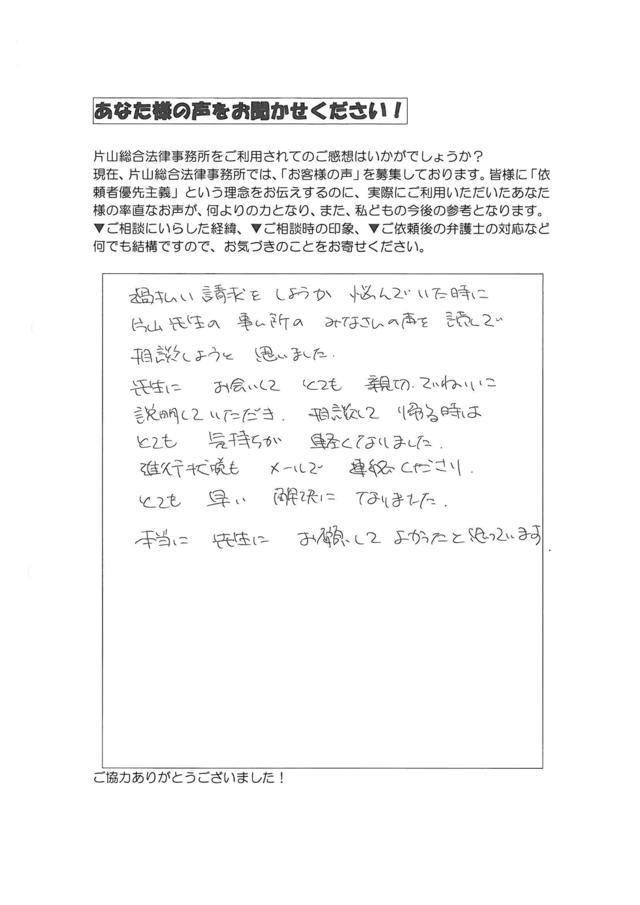 あなた様の声をお聞かせください！
片山総合法律事務所をご利用されてのご感想はいかがでしょうか？
現在、片山総合法律事務所では、「お客様の声」を募集しております。皆様に「依
頼者優先主義」という理念をお伝えするのに、実際にご利用いただいたあなた
様の率直なお声が、何よりの力となり、また、私どもの今後の参考となります。
▼ご相談にいらした経緯、▼ご相談時の印象、▼ご依頼後の弁護士の対応など
何でも結構ですので、お気づきのことをお寄せください。
過払い請求をしようか悩んでいた時に
片山先生の事ム所のみなさんの声を読んで
相談しようと思いました.
先生にお会いしてとても親切、ていねいに
説明していただき、相談して帰る時は
とても気持ちが軽くなりました.
進行状境もメールで連絡くださり、
とても早い解決になりました.
本当に先生にお願いしてよかったと思っています.
ご協力ありがとうございました！